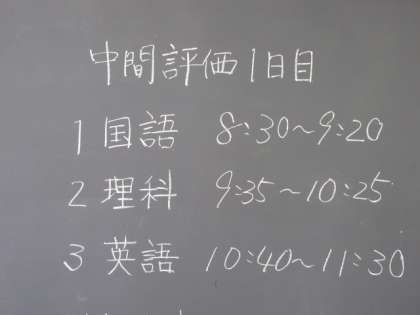 中間評価1日目
1 国語 8:30〜9:20
2 理科 9:35〜10:25
3 英語 10:40〜11:30